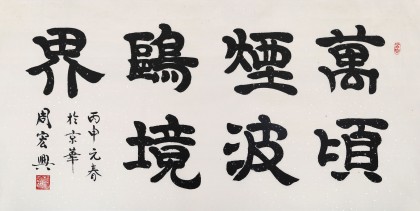 萬頃
煙波
鷗境
界
丙申元春
於京華
周宏興